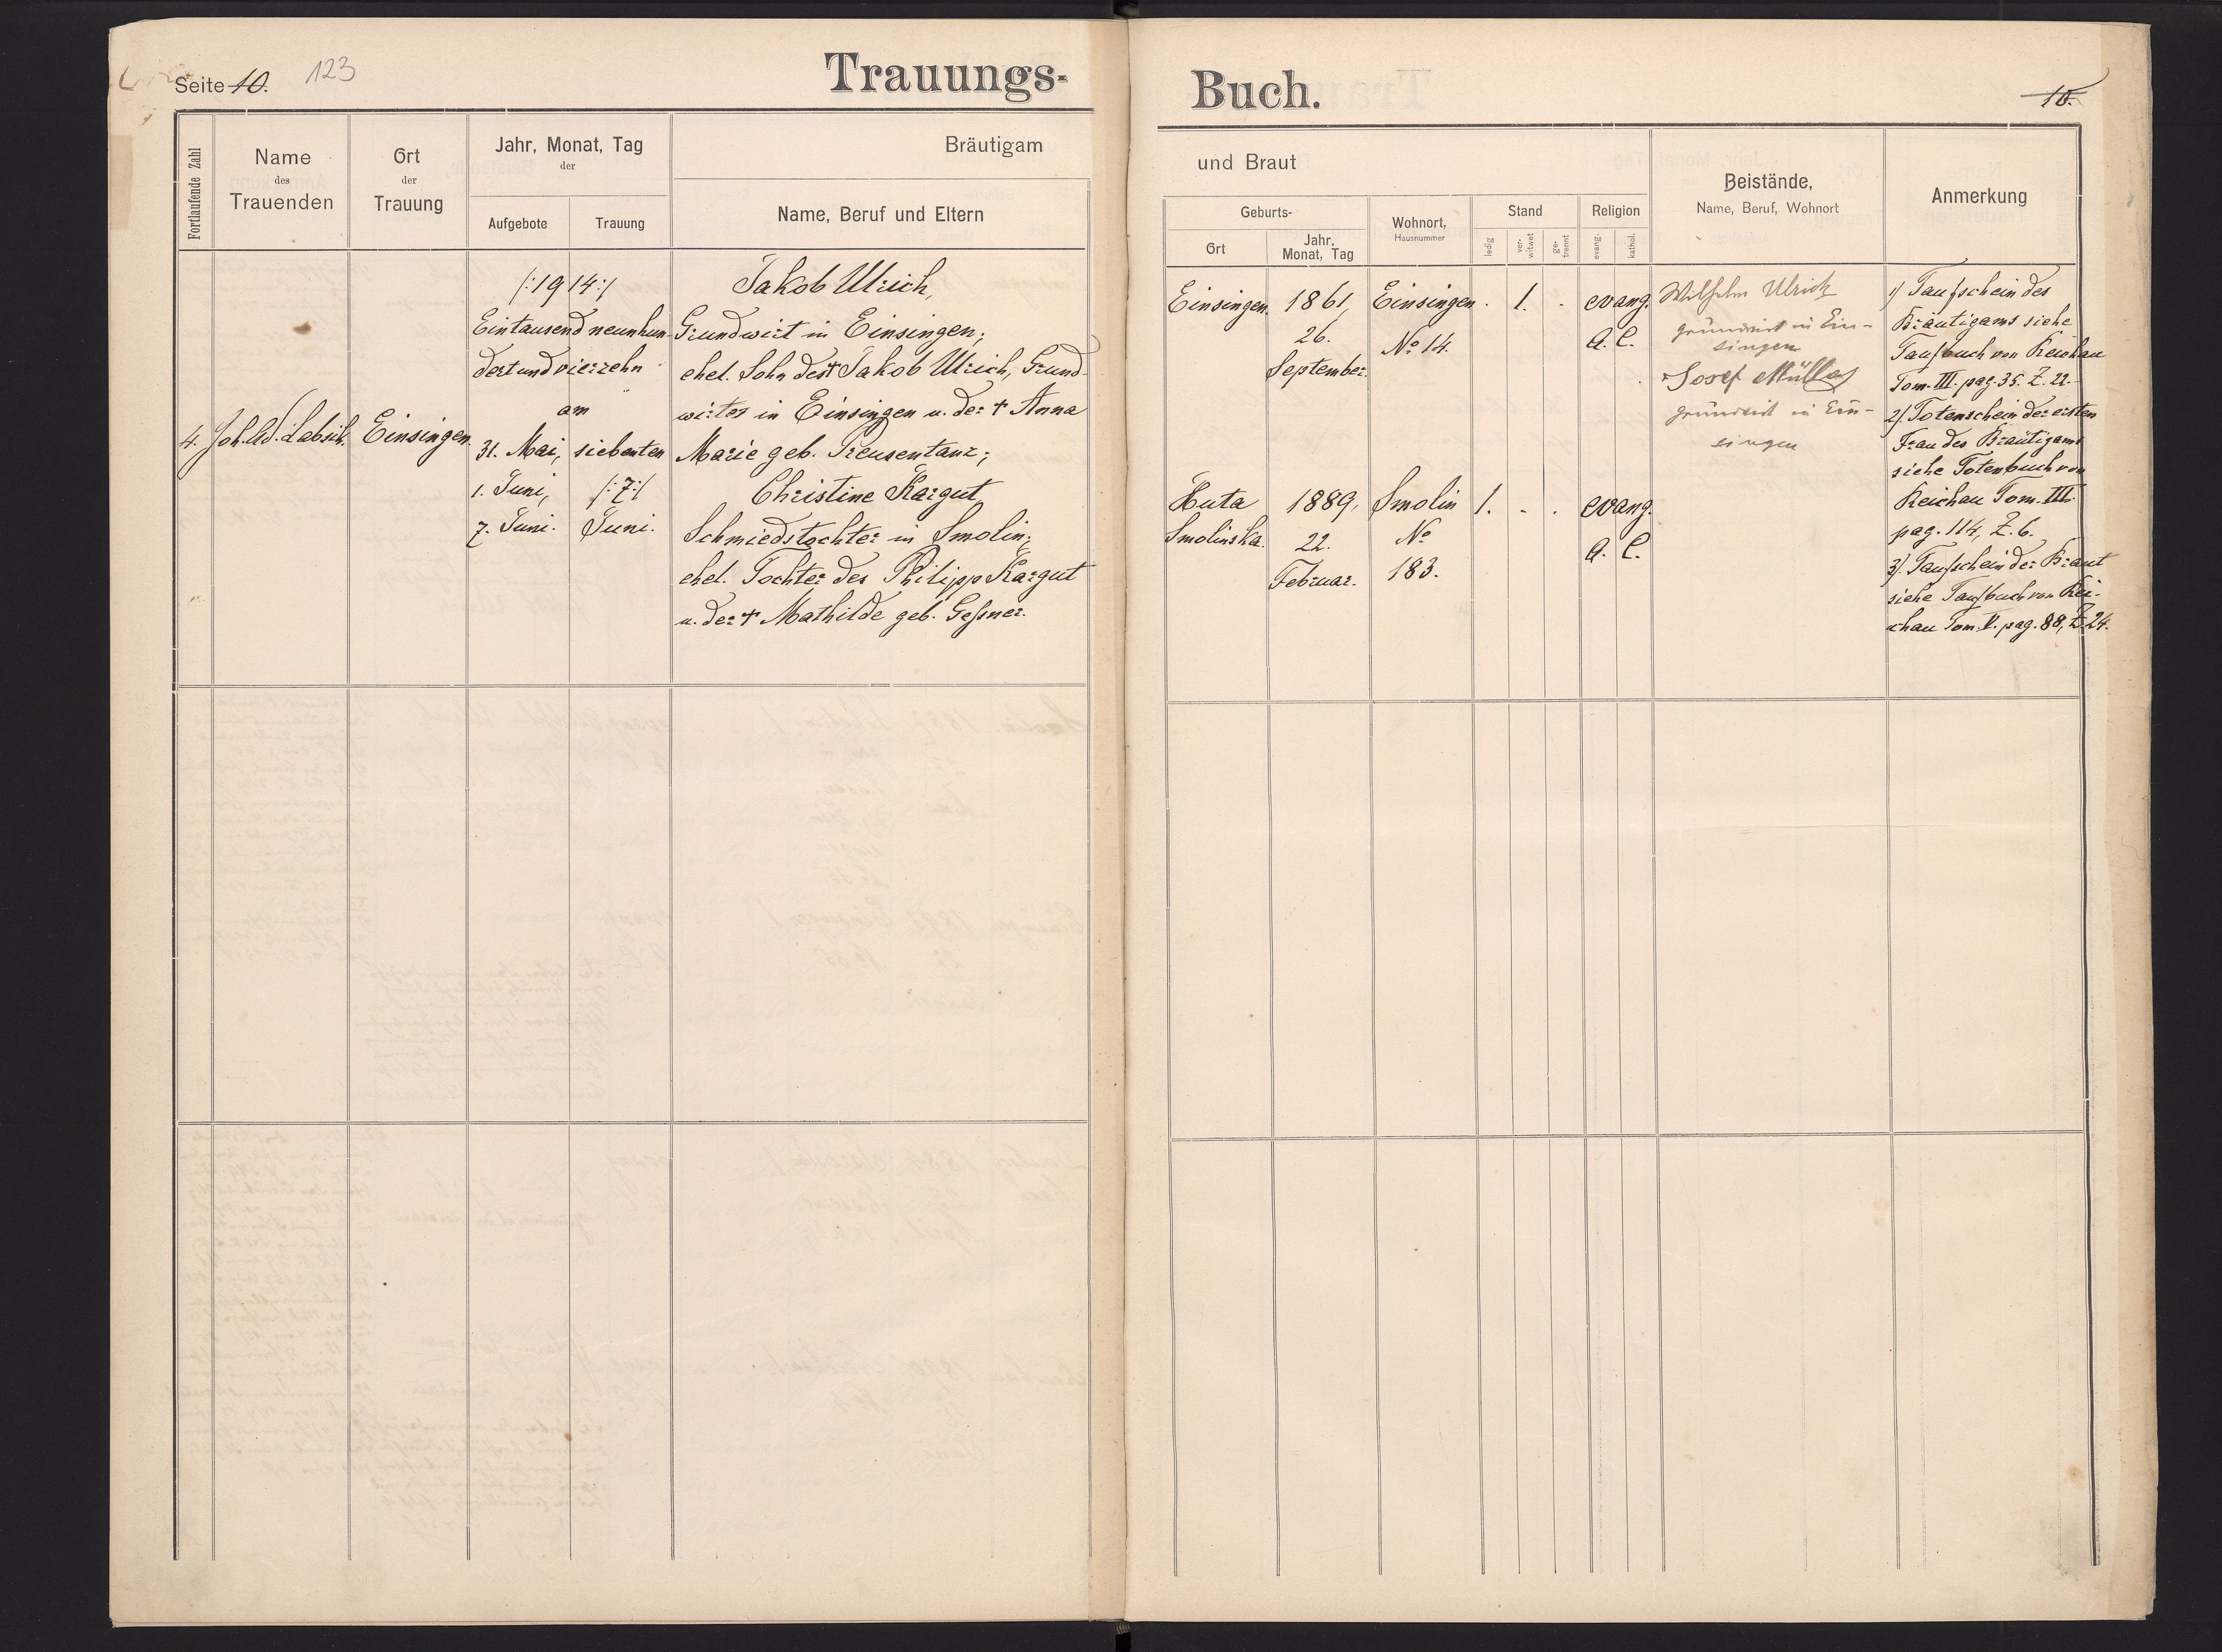 Seite 10. 123
Trauungs-
Buch.
10.
Fortlaufende Zahl
Name
des
Trauenden
Ort
der
Trauung
Jahr, Monat, Tag
der
Aufgebote
Trauung
Bräutigam
Name, Beruf und Eltern
und Braut
Geburts-
Ort
Jahr,
Monat, Tag
Wohnort,
Hausnummer
Stand
ledig
ver-
witwet
ge-
trennt
Religion
evang.
kathol.
Beistände,
Name, Beruf, Wohnort
Anmerkung
4.
Joh. Ad. Labsik.
Einsingen.
/:1914:/
Eintausend neunhun-
dertundvierzehn
am
31. Mai, siebenten
1. Juni, /:7:/
7. Juni. Juni.
Jakob Ulrich,
Grundwirt in Einsingen;
ehel. Sohn des † Jakob Ulrich, Grund-
wirtes in Einsingen u. der † Anna
Marie geb. Preusentanz;
Christine Kargut
Schmiedstochter in Smolin;
ehel. Tochter des Philipp Kargut
u. der † Mathilde geb. Geßner.
Einsingen.
1861,
26.
September.
Einsingen
No 14.
. 1. .
evang.
A. C.
Huta
Smolinska.
1889,
22.
Februar.
Smolin
No
183.
1. . .
evang.
A. C.
Wilhelm Ulrich
grundwirt in Ein-
singen
Josef Müller
grundwirt in Ein-
singen
1) Taufschein des
Bräutigams siehe
Taufbuch von Reichau
Tom. III. pag. 35. Z. 22.
2). Totenschein der ersten
Frau des Bräutigams
siehe Totenbuch von
Reichau Tom. III.
pag. 114, Z. 6.
3). Taufschein der Braut
siehe Taufbuch von Rei-
chau Tom. V. pag. 88, Z. 24.